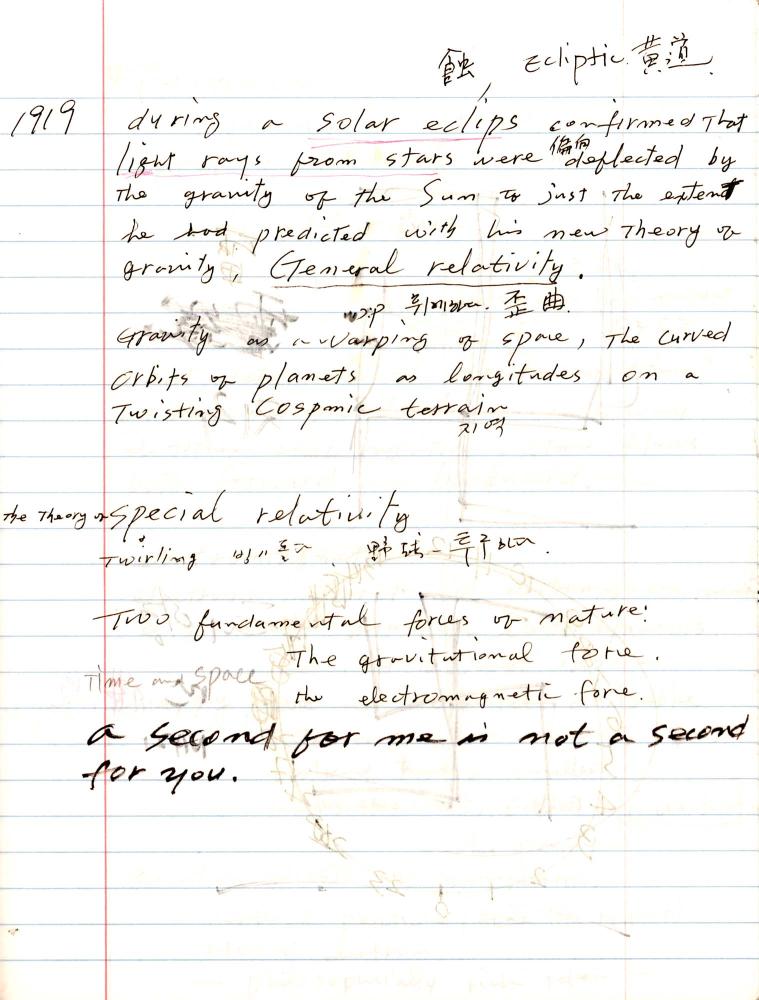 蝕, Ecliptic 黄道
1919 during a solar eclips confirmed That
light rays from stars were 偏向 deflected by
The gravity of the Sun To just The extent
he had predicted with his new Theory of
gravity, General relativity.
warp 휘게하다. 歪曲.
Gravity as a Warping of space, The curved
Orbits of planets as longitudes on a
Twisting Cospmic terrain
지역
The Theory of special relativity
Twirling 빙빙돌다
Two fundamental forces of nature:
The gravitutional force.
Time and Space
the electromagnetic force.
a second for me is not a second
for you.